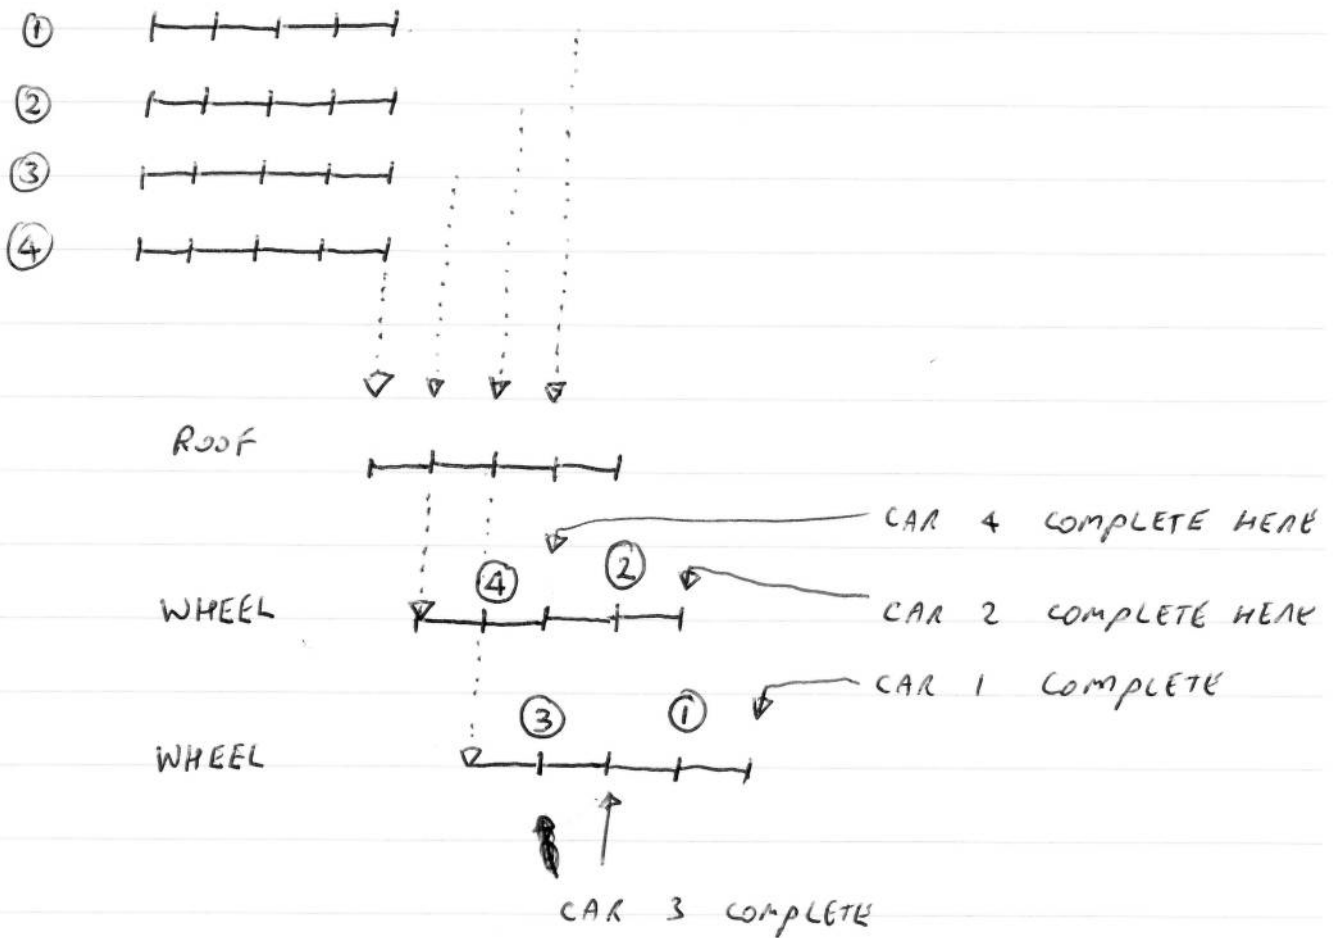 ①
②
③
④
ROOF
CAR 4 COMPLETE HERE
④ ②
WHEEL
CAR 2 COMPLETE HERE
CAR 1 COMPLETE
③ ①
WHEEL
CAR 3 COMPLETE